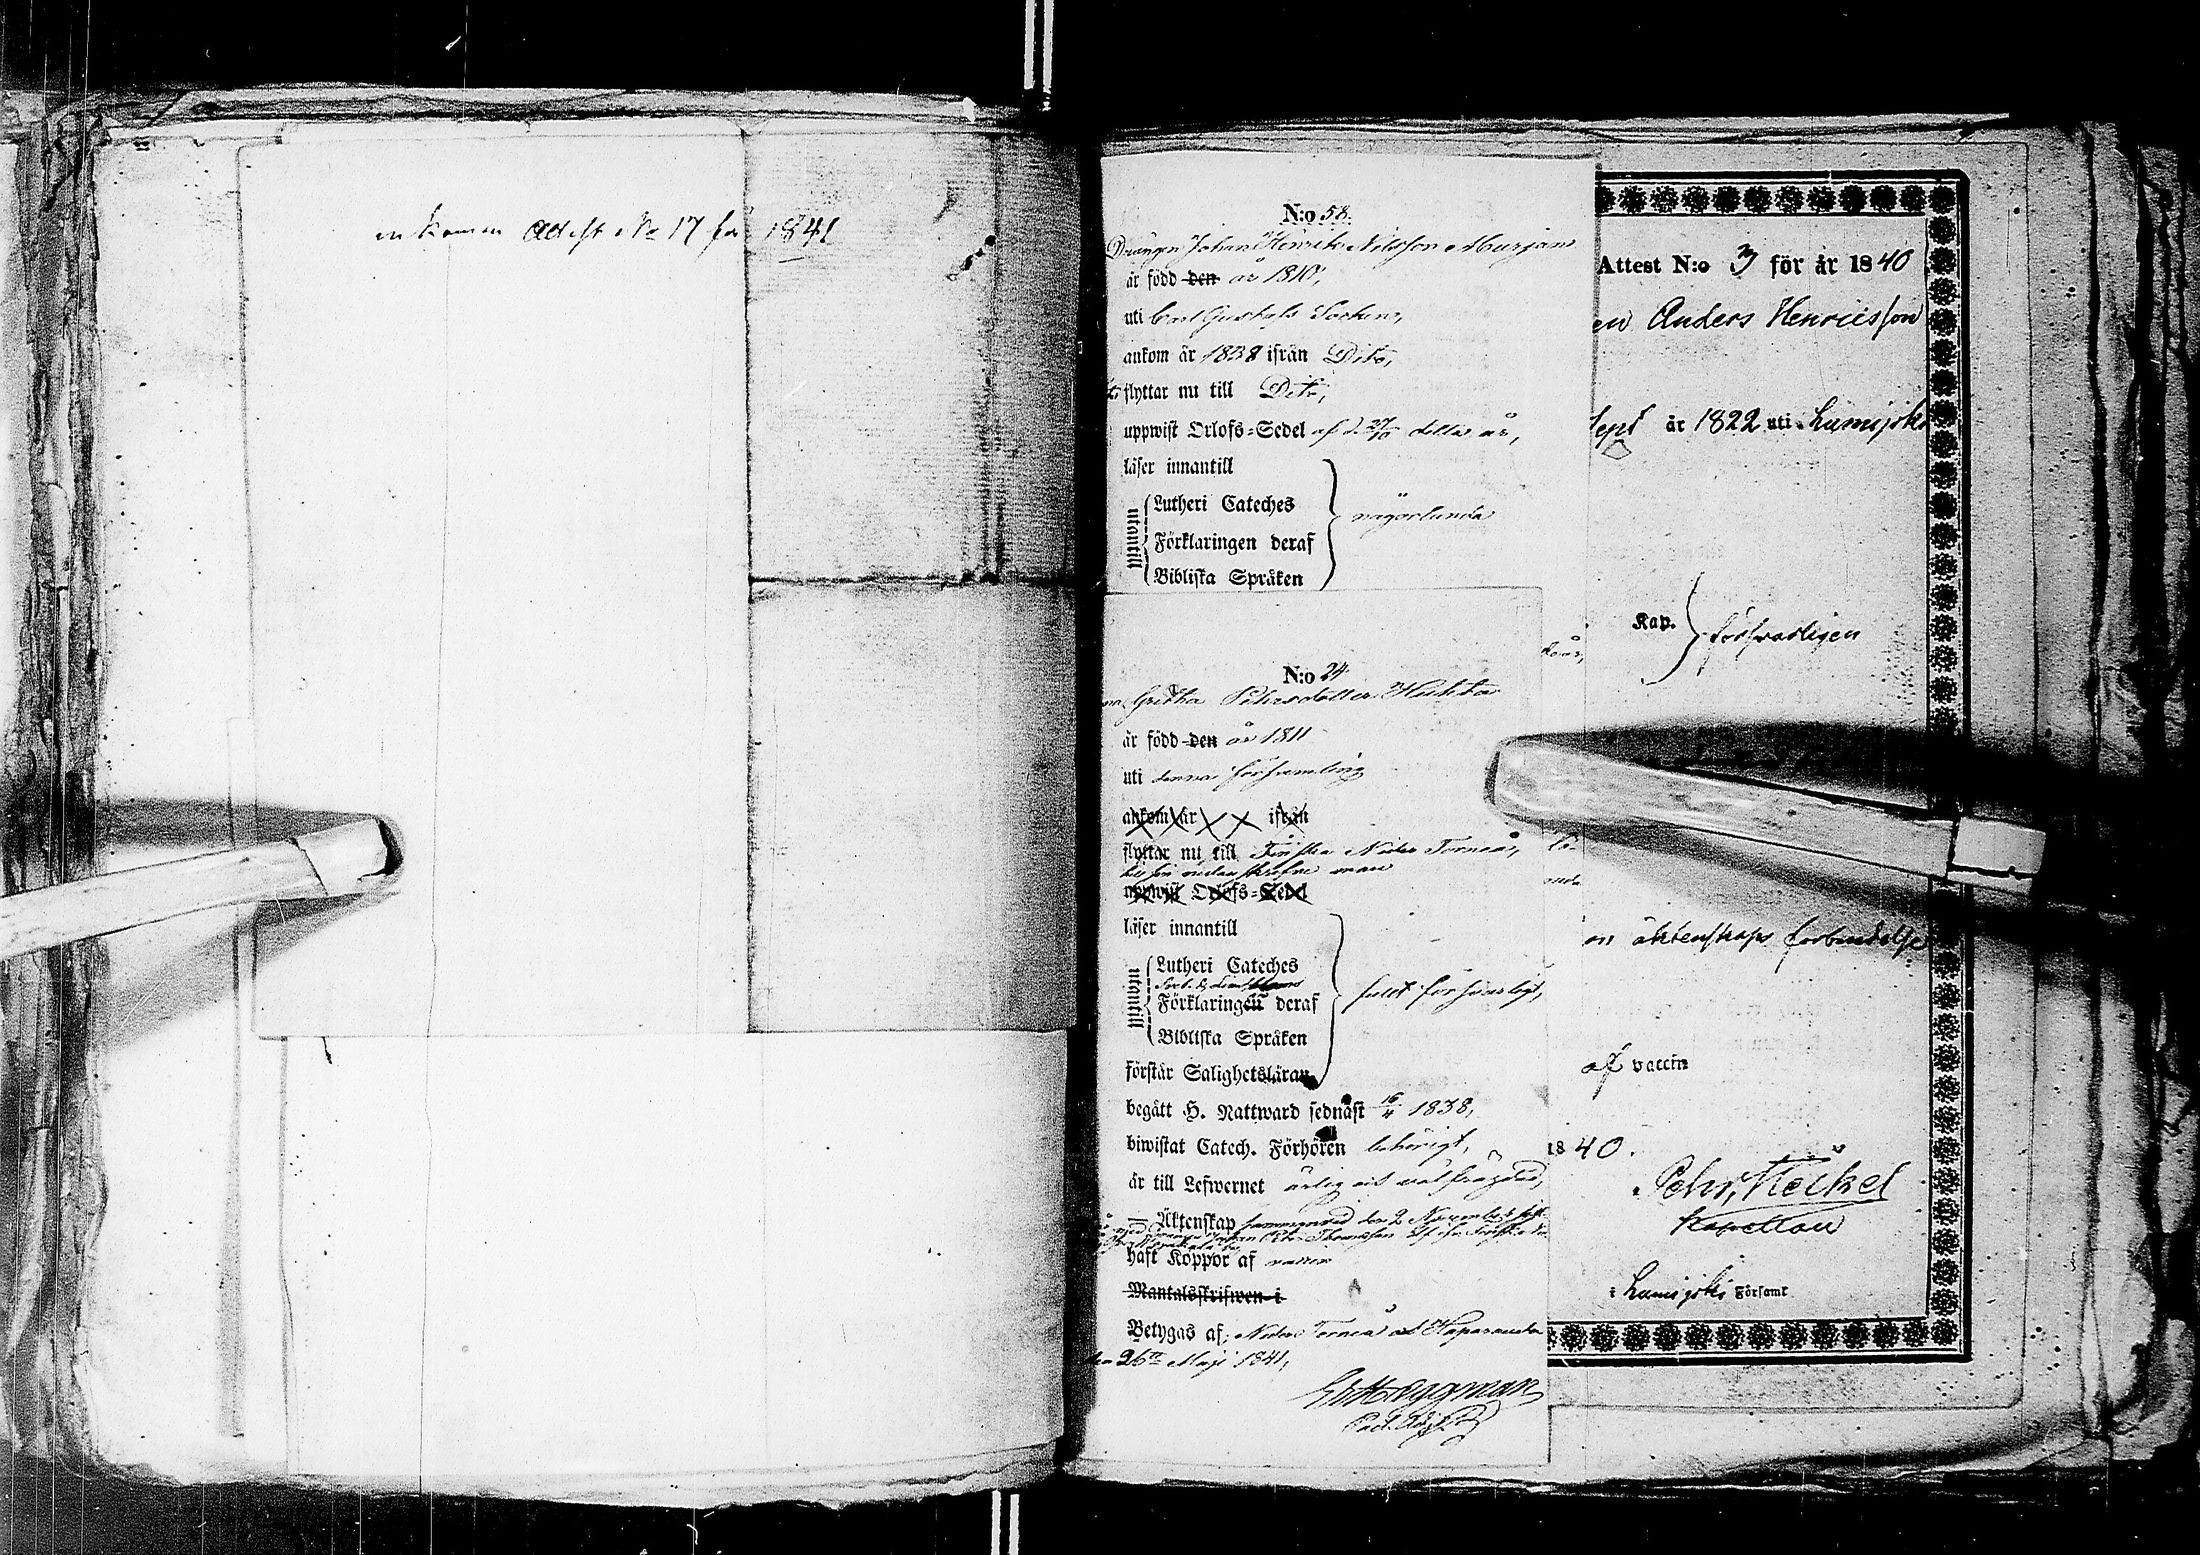 en kommen Attest No 17 för 1841
N:o 58.
Drängen Johan Henrik Nilsson Murjan
är född den år 1810,
uti Carl Gustafs Socken,
ankom år 1838 ifrån Dito,
flyttar nu till Dito,
uppwist Orlofs-Sedel af d. detta år,
läser innantill
utantill
Lutheri Cateches
Förklaringen deraf
Bibliska Språken
någorlunda
N:o 24
Gretha Pehrsdotter Huhta
är född den år 1811
uti denna församling
ankom år ifrån
flyttar nu till Finska Neder Torneå,
man
uppwist Orlofs-Sedel
läser innantill
utantill
Lutheri Cateches
Förklaringen deraf
Bibliska Språken
fullt försvarligt,
förstår Salighetsläran
begått H. Nattward sednast 16/4 1838,
biwistat Catech. Förhören behörigt,
är till Lefwernet ärlig och välfrägdad,
— Äktenskap den 2 November
med Johan Thomasson
haft Koppor af vaccin
Mantalsskrifwen i
Betygas af Neder Torneå och Haparanda
den 26te Maji 1841,
Häggman
Past. Adj.
Attest N:o 3 för år 1840
en Anders Henricsson
Sept år 1822 uti Lumijoki
Kap.
försvarligen
on äktenskaps förbindelse
af vaccin
1840.
Pehr Heikel
Kapellan
i Lumijoki Församl